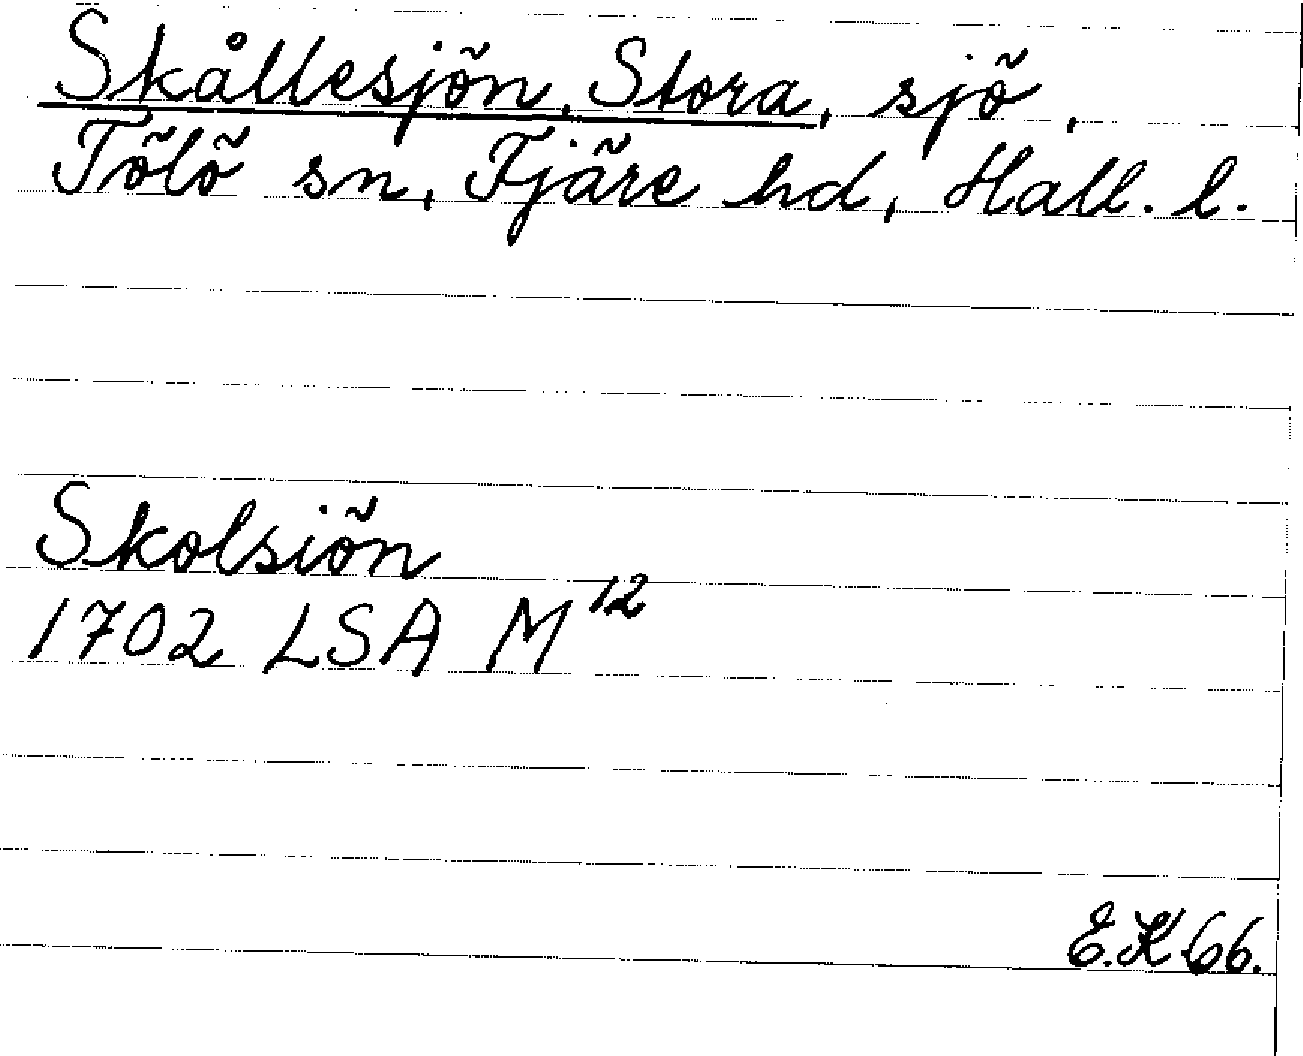 Skållesjön, Stora, sjö,
Tölö sn, Fjäre hd, Hall. l.
Skolsiön
1702 LSA M12
E.K 66.